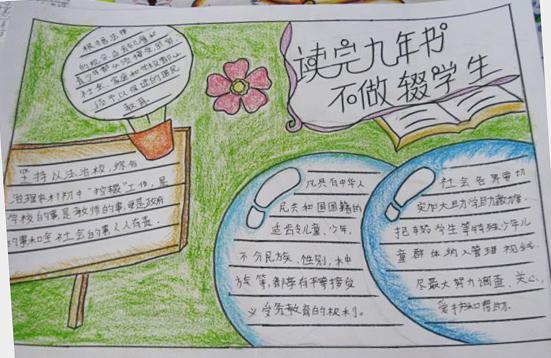 读完九年书
不做辍学生
根据法律
的规定,适龄儿童和
青少年都必须接受,国家
社会、家庭和学校都必
须予以保证的国民
教育。
坚持以法治校,综合
治理农村初中"控辍"工作,是
学校的事是教师的事,更是政府
的事和全社会的事人人有责。
凡具有中华人
民共和国国籍的
适龄儿童、少年,
不分民族、性别、种
族等,都享有平等接受
义务教育的权利。
社会各界要切
实加大助学助教
把辍学生等特殊少年儿
童群体纳入管理视线
尽最大努力调查、关心,
爱护和帮助。